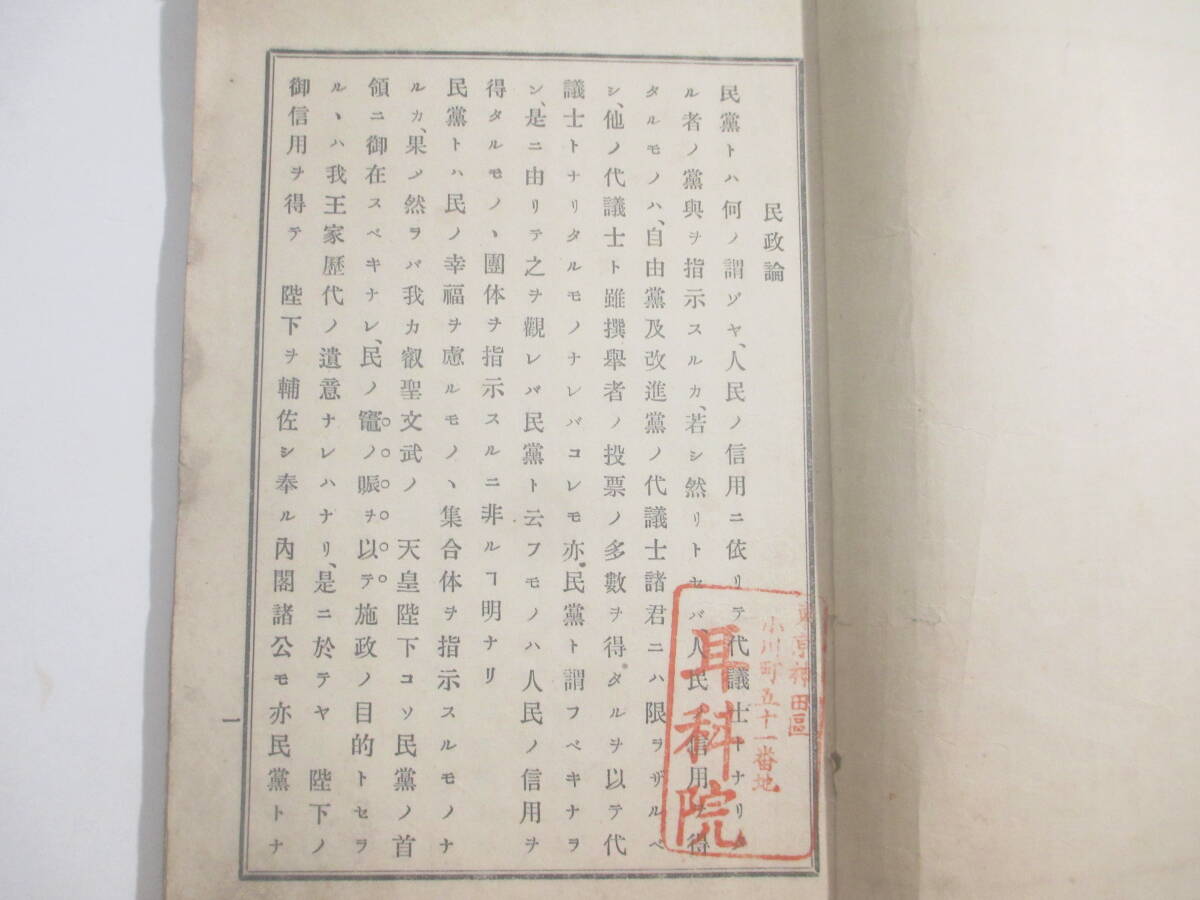 民政論
民黨トハ何ノ謂ゾヤ、人民ノ信用ニ依リテ代議士トナリタ
ル者ノ黨與ヲ指示スルカ、若シ然リトセバ、人民ノ信用ヲ得
タルモノハ、自由黨及改進黨ノ代議士諸君ニハ限ラザルベ
シ、他ノ代議士ト雖撰舉者ノ投票ノ多數ヲ得タルヲ以テ代
議士トナリタルモノナレバコレモ亦民黨ト謂フベキナラ
ン、是ニ由リテ之ヲ觀レバ民黨ト云フモノハ人民ノ信用ヲ
得タルモノヽ團体ヲ指示スルニ非ルヿ明ナリ
民黨トハ民ノ幸福ヲ慮ルモノヽ集合体ヲ指示スルモノナ
ルカ、果シ然ラバ我カ叡聖文武ノ 天皇陛下コソ民黨ノ首
領ニ御在スベキナレ、民ノ竈ノ賑ヲ以テ施政ノ目的トセラ
ルヽハ我王家歴代ノ遺意ナレハナリ、是ニ於テヤ 陛下ノ
御信用ヲ得テ 陛下ヲ輔佐シ奉ル內閣諸公モ亦民黨トナ
一
東京神田區
小川町五十一番地
耳科院